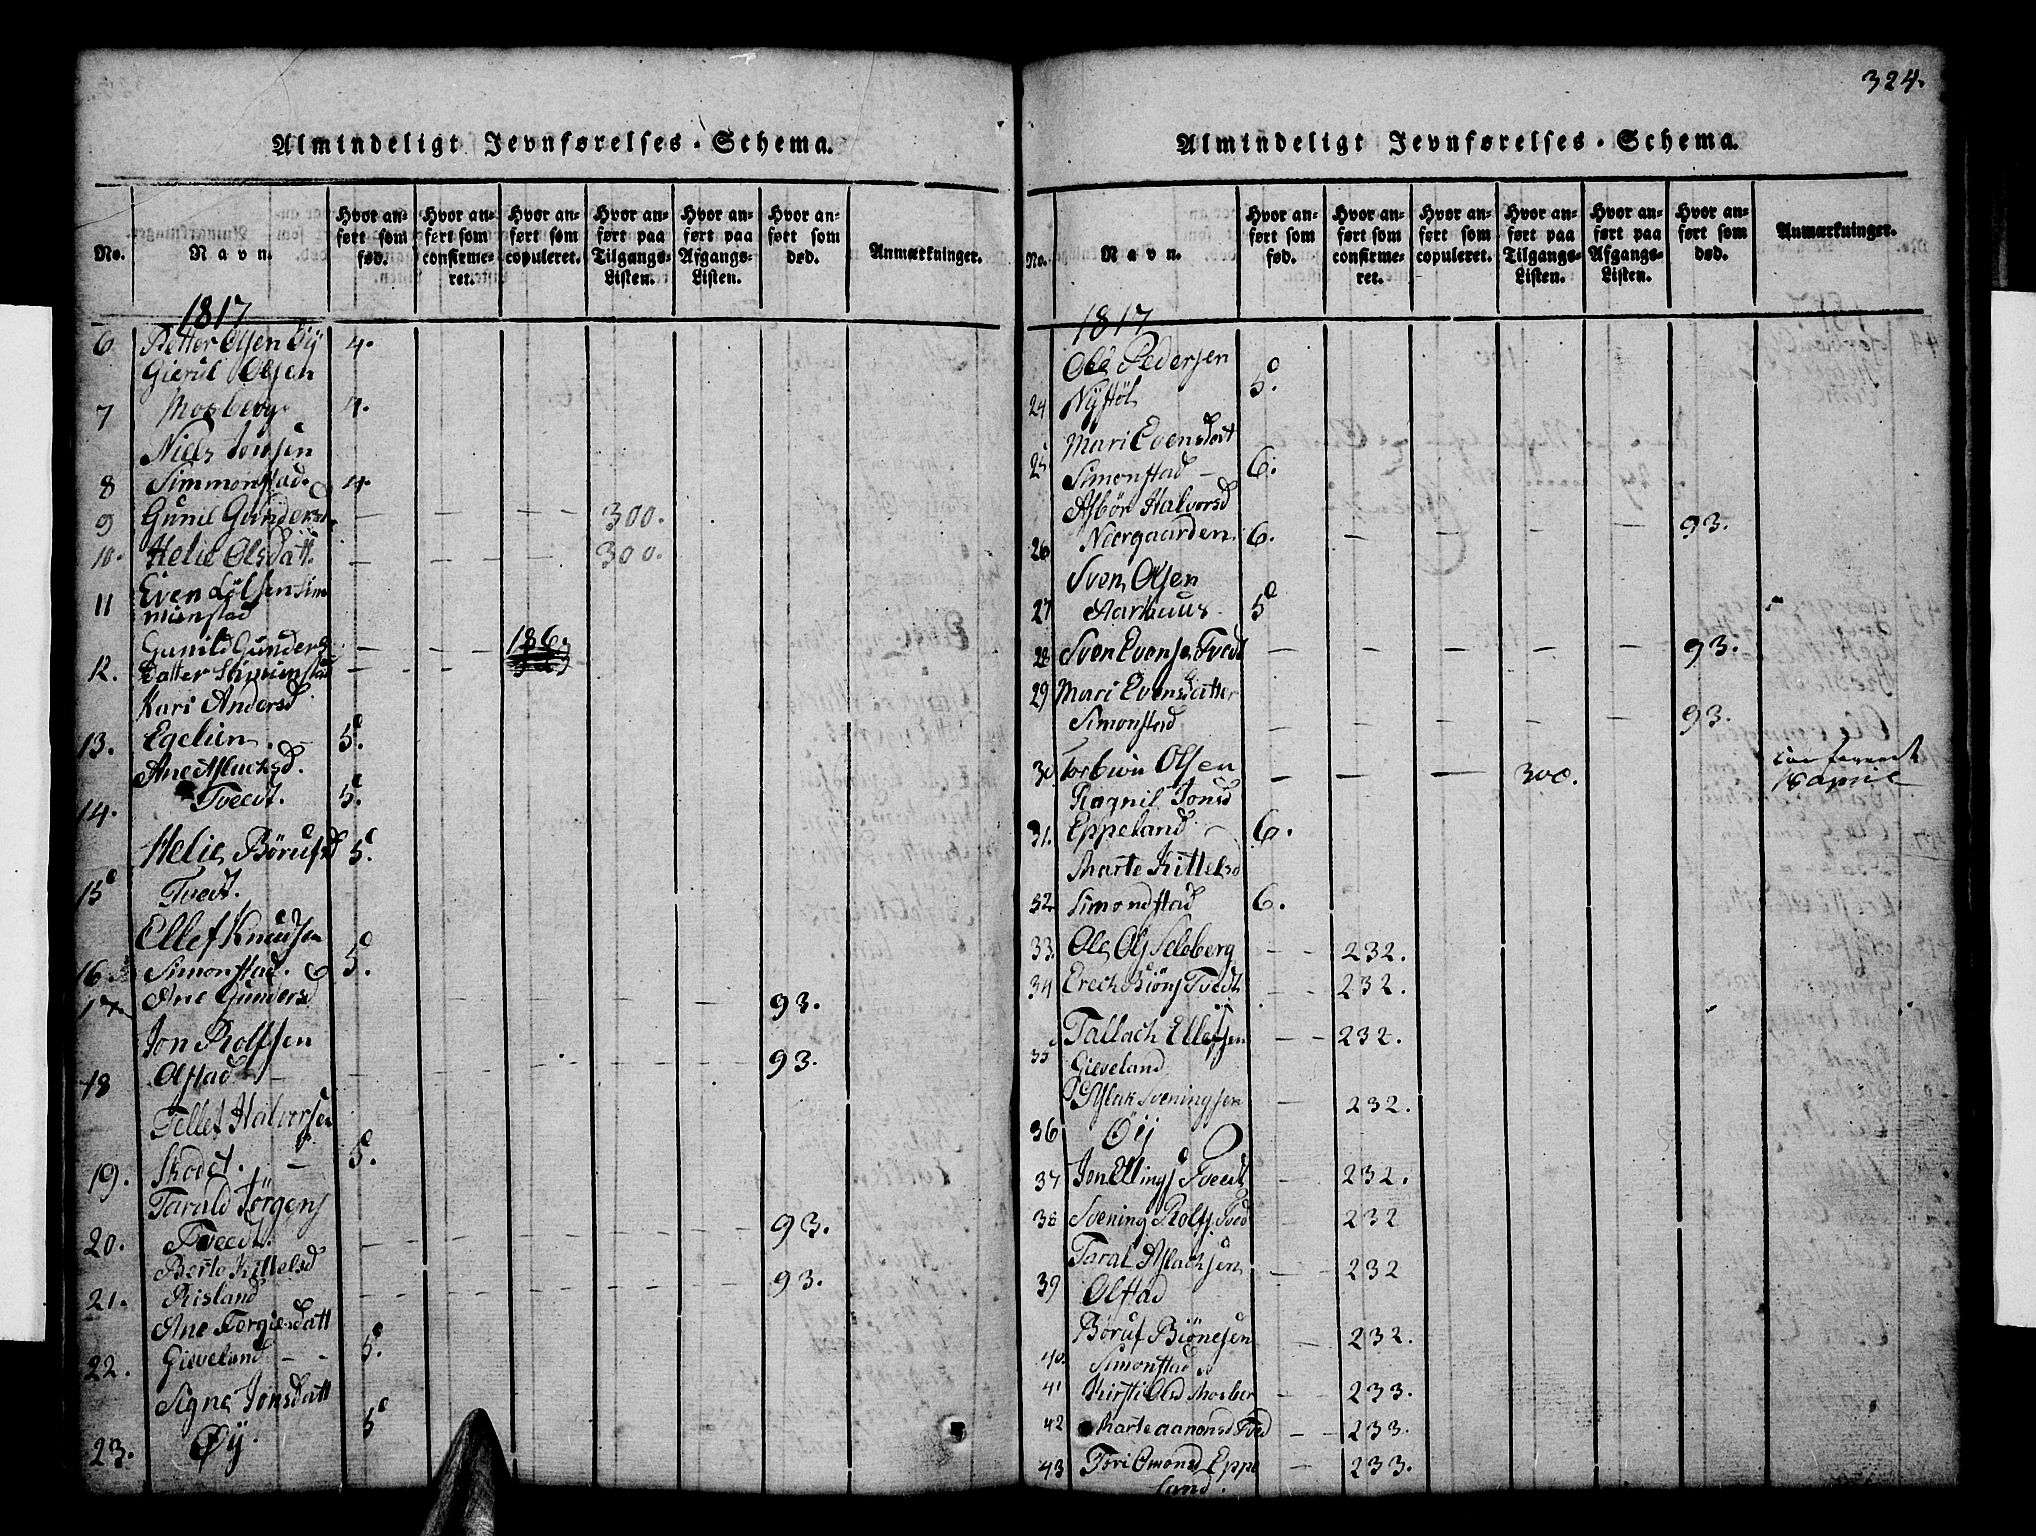 324.
Almindeligt Jevnførelses-Schema.
No.
Navn.
Hvor anført som fød.
Hvor anført som confirmeret.
Hvor anført som copuleret.
Hvor anført paa Tilgangs-Listen.
Hvor anført paa Afgangs-Listen.
Hvor anført som død.
Anmærkninger.
1817
6 Petter Olsen Øÿ 4.
Gierul Olsen
7 Mosberg. 4.
Niels Jensen
8 Simmonstad. 4.
9 Gunil Gunders 300.
10. Helie Olsdatt. 300.
11 Even Simmonstad
Gunild Gunders 186.
12. Datter Simmonstad
Kari Andersd
13. Egelien. 5.
Ane Aslacksd.
14. Tveedt. 5.
Helie Børufsd 5.
15 Tvedt.
Ellef Knudsen
16. Simonstad. 5.
17 Ane Gundersd 93.
Jon Rolfsen
18 Olstad 93.
Tellef Halvorsen
19. Skodet. 5.
Tarald Jørgens
20. Tveedt. 93.
Berte Kittelsd
21. Risland 93.
Ane Tergiesdatt
22. Gieveland 5.
Signe Jonsdatt
23. Øÿ. 5
Almindeligt Jevnførelses-Schema.
No.
Navn.
Hvor anført som fød.
Hvor anført som confirmeret.
Hvor anført som copuleret.
Hvor anført paa Tilgangs-Listen.
Hvor anført paa Afgangs-Listen.
Hvor anført som død.
Anmærkninger.
1817
Ole Pedersen
24 Nÿstøl 5.
Mari Evensdat
25 Simonstad 6.
Asbør Halvorsd
26 Neergaarden. 6. 93.
Sven Olsen
27 Aarhuus. 5
28 Sven Evense Tvedt 93.
29 Mari Evensdatter
Simonstad 93.
30. Torbiør Olsen 300. 16 April
Ragnil Jonsd
31. Eppeland 6.
Marte Kittelsd
32 Simondstad 6.
33. Ole Ols Seleberg 232.
34 Erech Biøns Tvedt 232.
35 Tallach Ellefsen 232.
Gieveland
Aslak Sveningsen 232.
36 Øÿ
37 Jon Ellings Tveedt 232.
38 Svening Rolfs Tved 232
Taral Aslachsen 232
39 Olstad
Børuf Biønesen 232.
40. Simonstad
41 Kirsti Olsd Mosber 233.
42 Marte Aanonsd Tved 233.
43 Tori Omonsd Eppe 233.
land.